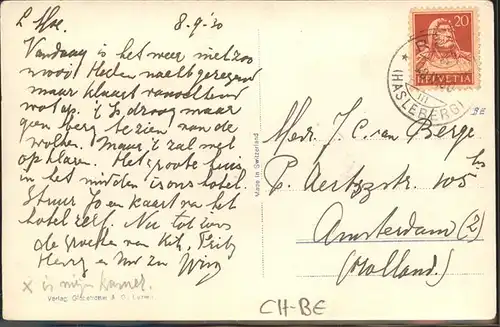 L Moe. 8-9-'30
Vandaag is het weer niet zoo
mooi. Heden nacht geregend
maar klaart vanochtend
wat op. 't Is droog maar
geen berg te zien van de
wolken. Maar 't zal wel
opklaren. Het groote huis
in het midden is ons hotel.
Stuur Jo en kaart van het
hotel zelf. Nu tot ziens
de groeten van Kik, Frits
Herry en
x is mijn kamer.
Verlag
Made in Switzerland
20
HELVETIA
(HASLEBERG)
III
BE
Heer J. C. van Berge
P. Aertszstr. 105 hs
Amsterdam (Z)
(Holland.)
CH-BE